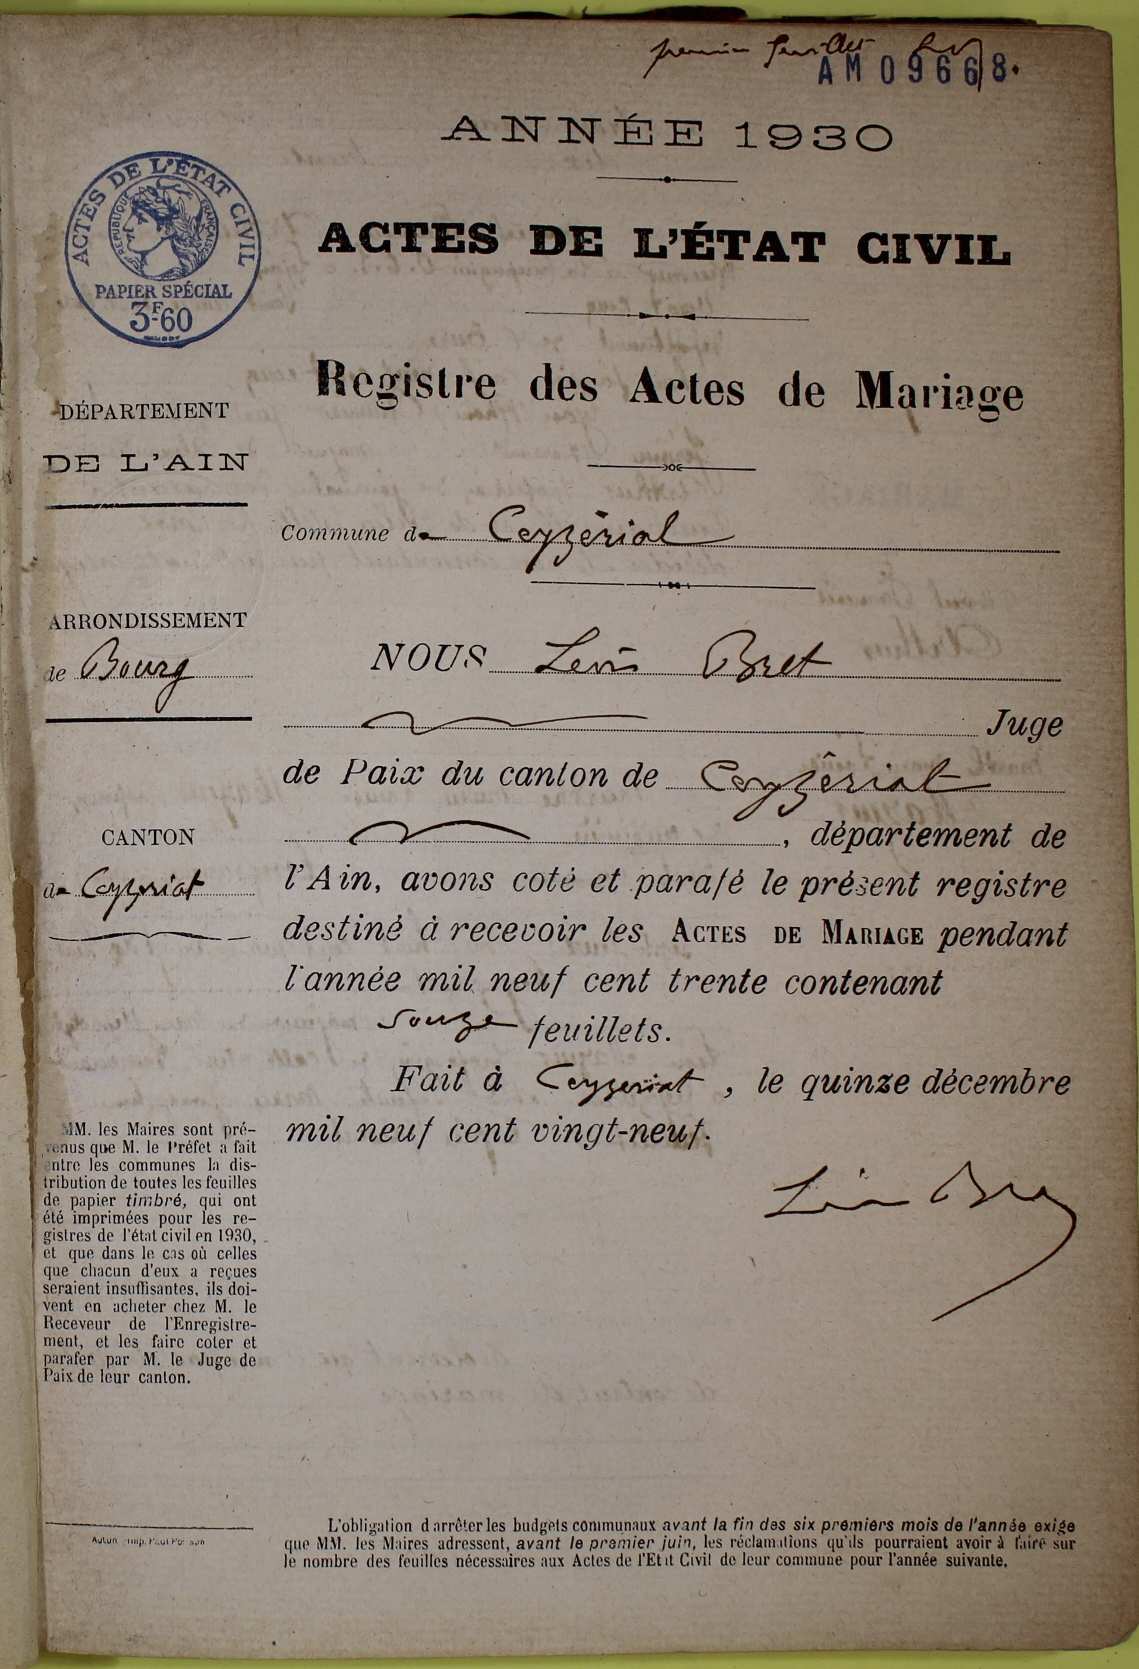 premier feuillet
AM 09668.
ANNÉE 1930
ACTES DE L'ÉTAT CIVIL
RÉPUBLIQUE FRANÇAISE
PAPIER SPÉCIAL
3F-60
ACTES DE L'ÉTAT CIVIL
Registre des Actes de Mariage
DÉPARTEMENT
DE L'AIN
Commune de Ceyzériat
ARRONDISSEMENT
de Bourg
NOUS Léon Bret
Juge
de Paix du canton de Ceyzériat
, département de
CANTON
de Ceyzeriat
l'Ain, avons coté et parafé le présent registre
destiné à recevoir les ACTES DE MARIAGE pendant
l'année mil neuf cent trente contenant
feuillets.
Fait à Ceyzeriat, le quinze décembre
mil neuf cent vingt-neuf.
Léon Bret
MM. les Maires sont pré-
venus que M. le Préfet a fait
entre les communes la dis-
tribution de toutes les feuilles
de papier timbré, qui ont
été imprimées pour les re-
gistres de l'état civil en 1930,
et que dans le cas où celles
que chacun d'eux a reçues
seraient insuffisantes, ils doi-
vent en acheter chez M. le
Receveur de l'Enregistre-
ment, et les faire coter et
parafer par M. le Juge de
Paix de leur canton.
Autun, Imp. Paul
L'obligation d'arrêter les budgets communaux avant la fin des six premiers mois de l'année exige
que MM. les Maires adressent, avant le premier juin, les réclamations qu'ils pourraient avoir à faire sur
le nombre des feuilles nécessaires aux Actes de l'Etat Civil de leur commune pour l'année suivante.